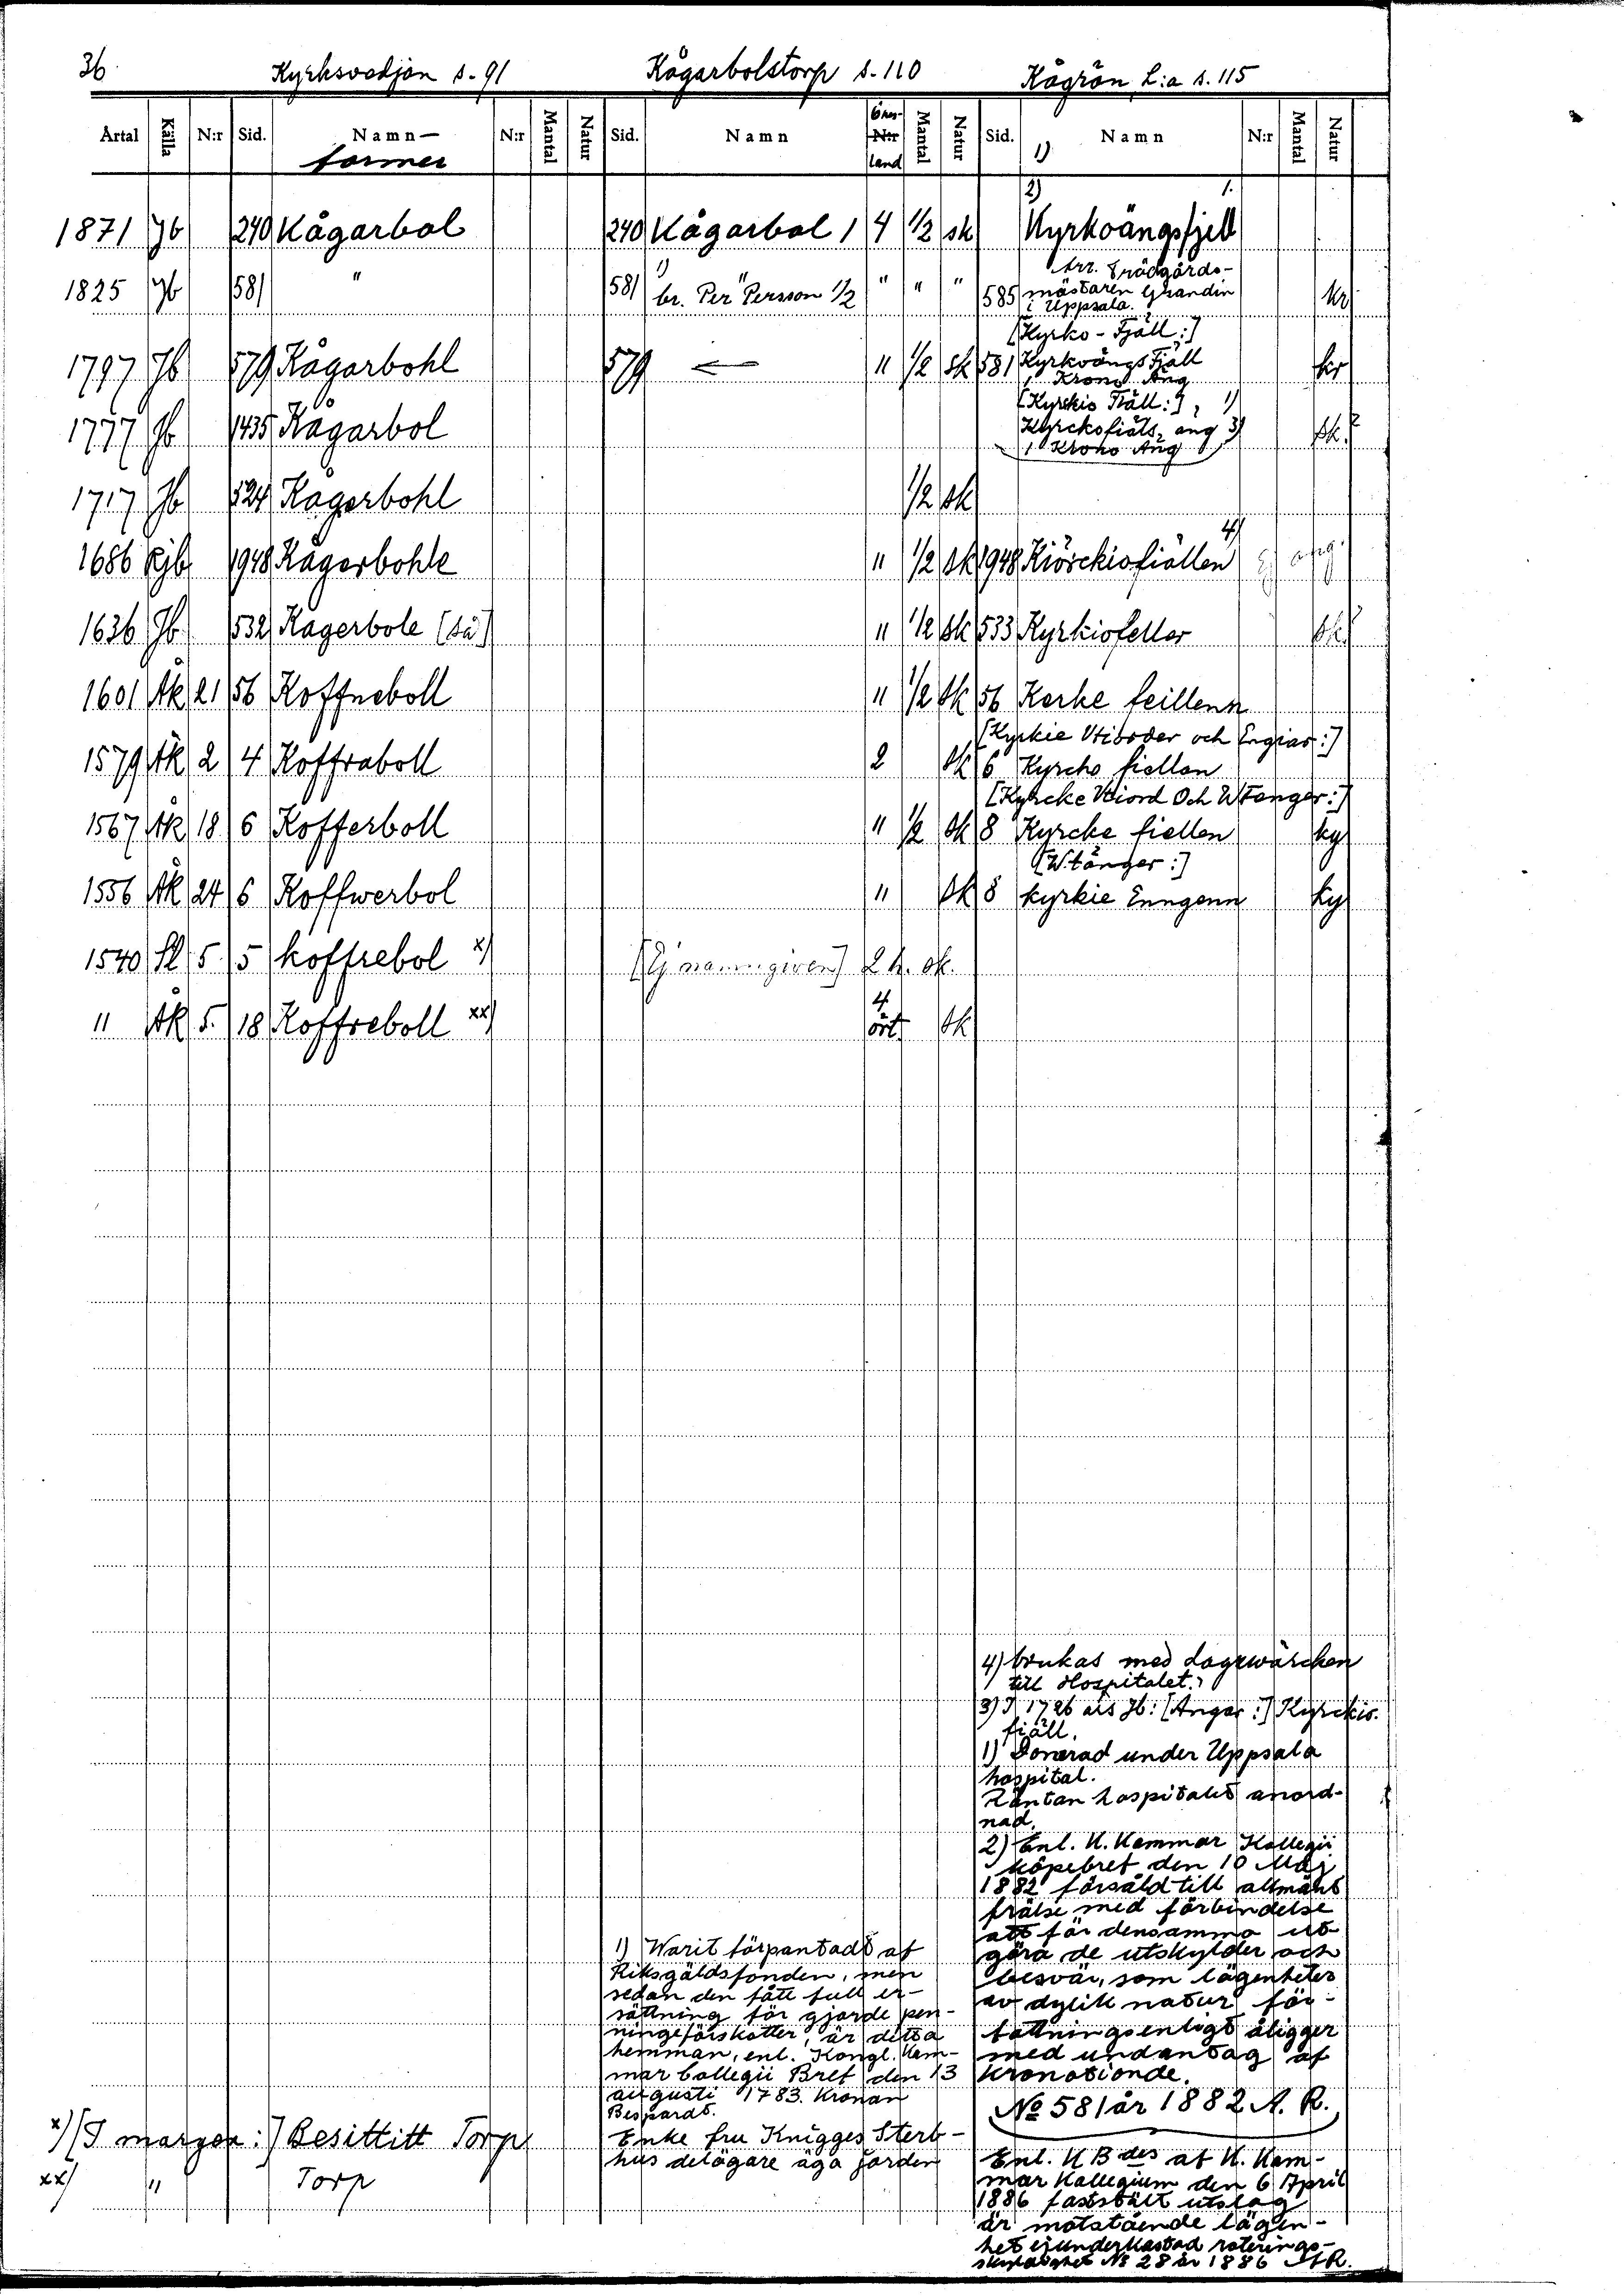 36 Kyrksvedjan s. 91 Kågarbolstorp s. 110 Kågrön L:a s. 115
Årtal Källa N:r Sid. Namn- N:r Mantal Natur Sid. Namn Öres- N:r Mantal Natur Sid. Namn N:r Mantal Natur
former land 1)
2) 1.
1871 Jb 240 Kågarbol 240 Kågarbol 1 4 1/2 sk Kyrkoängsfjell
1825 Jb 581 " 581 1) br. Per Persson 1/2 " " " 585 Arr. Trädgårds-
mästaren Grandin kr
i Uppsala.
[Kyrko-Fjäll:]
1797 Jb 579 Kågarbohl 579 — " 1/2 sk 581 Kyrkoängs Fjäll kr
1 Krono Äng
[Kyrkio Fiäll:], 1)
1777 Jb 1435 Kågarbol Kyrckofiäls äng 3) sk.?
1 Krono Äng
1717 Jb 524 Kågerbohl 1/2 sk
1686 Rjb 1948 Kågerbohle " 1/2 sk 1948 Kiörckiofiällen 4) Ej ang.
1636 Jb 532 Kagerbole [så] " 1/2 sk 533 Kyrkiofeller sk?
1601 Åk 21 56 Koffneboll " 1/2 sk 56 Kerke feillenn
[Kyrkie Vtiorder och Engiar:]
1579 Åk 2 4 Koffraboll 2 sk 6 Kyrcho fiellan
[Kyrcke Vtiord Och Wtenger:]
1567 Åk 18 6 Kofferboll " 1/2 sk 8 Kyrcke fiellen ky
[Wtänger:]
1556 Åk 24 6 Koffwerbol " sk 8 kyrkie Enngenn ky
1540 Sl 5 5 koffrebol x) [Ej namngiven] 2 h. sk.
" Åk 5. 18 Koffreboll xx) 4 ört. sk
4) brukas med Lagewärcken
till Hospitalet.
3) I 1726 års Jb: [Ängar:] Kyrckio.
fiäll.
1) Donerad under Uppsala
hospital.
Räntan hospitalet anord-
nad.
2) Enl. K. Kammar Kollegii
köpebref den 10 Maj
1882 försåld till allmänt
frälse med förbindelse
att för densamma ut-
göra de utskylder och
besvär, som lägenheter
av dylik natur för-
fattningsenligt åligger
med undantag af
kronotionde.
No 581 år 1882 A. R.
Enl. K B des af K. Kam-
mar Kollegium den 6 April
1886 fastställt utslag
är motstående lägen-
het ej underkastad roterings-
skyldighet No 28 år 1886 AR.
1) Warit förpantadt af
Riksgäldsfonden, men
sedan den fått full er-
sättning för gjorde pen-
ningeförskotter, är detta
hemman, enl. Kongl. Kam-
mar Collegii Bref den 13
augusti 1783. Kronan
Bespardt.
Enke fru Knigges Sterb-
hus delägare äga jorden
x) [I margen:] Besittitt Torp
xx) " Torp